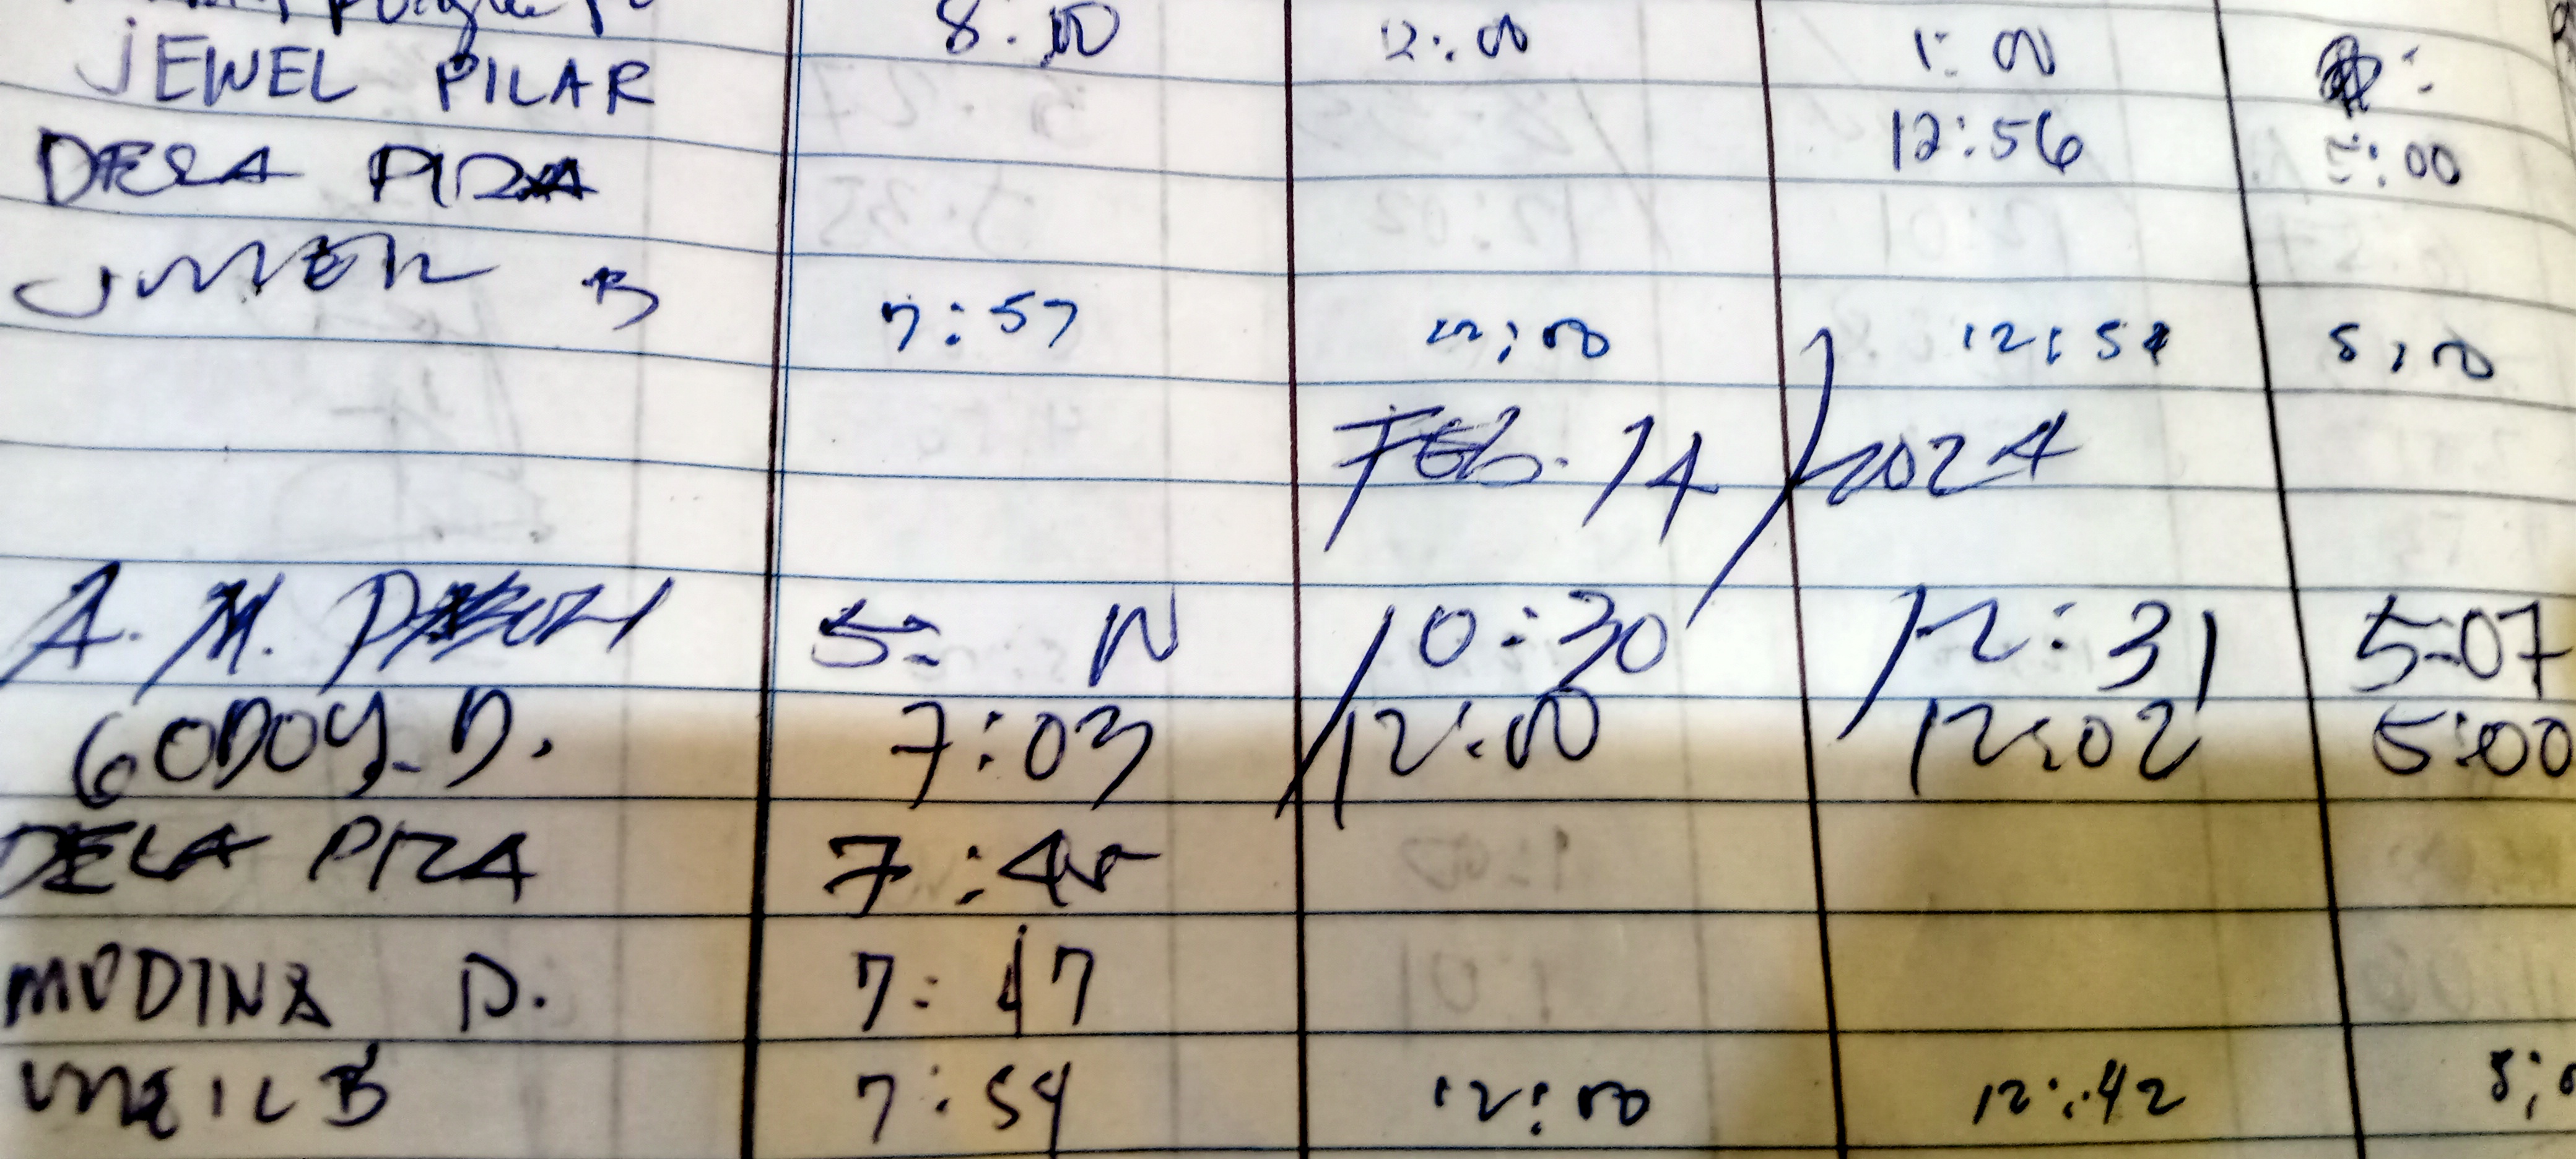 8:00 12:00 1:00
JEWEL PILAR 12:56 5:00
DELA PIZA
B 7:57 12:00 12:54 5:00
FEB. 14/2024
A. M. 5: 10:30 12:31 5:07
GODOY D. 7:03 12:00 12:02 5:00
DELA PIZA 7:45
MODINA D. 7:47
B 7:54 12:00 12:42